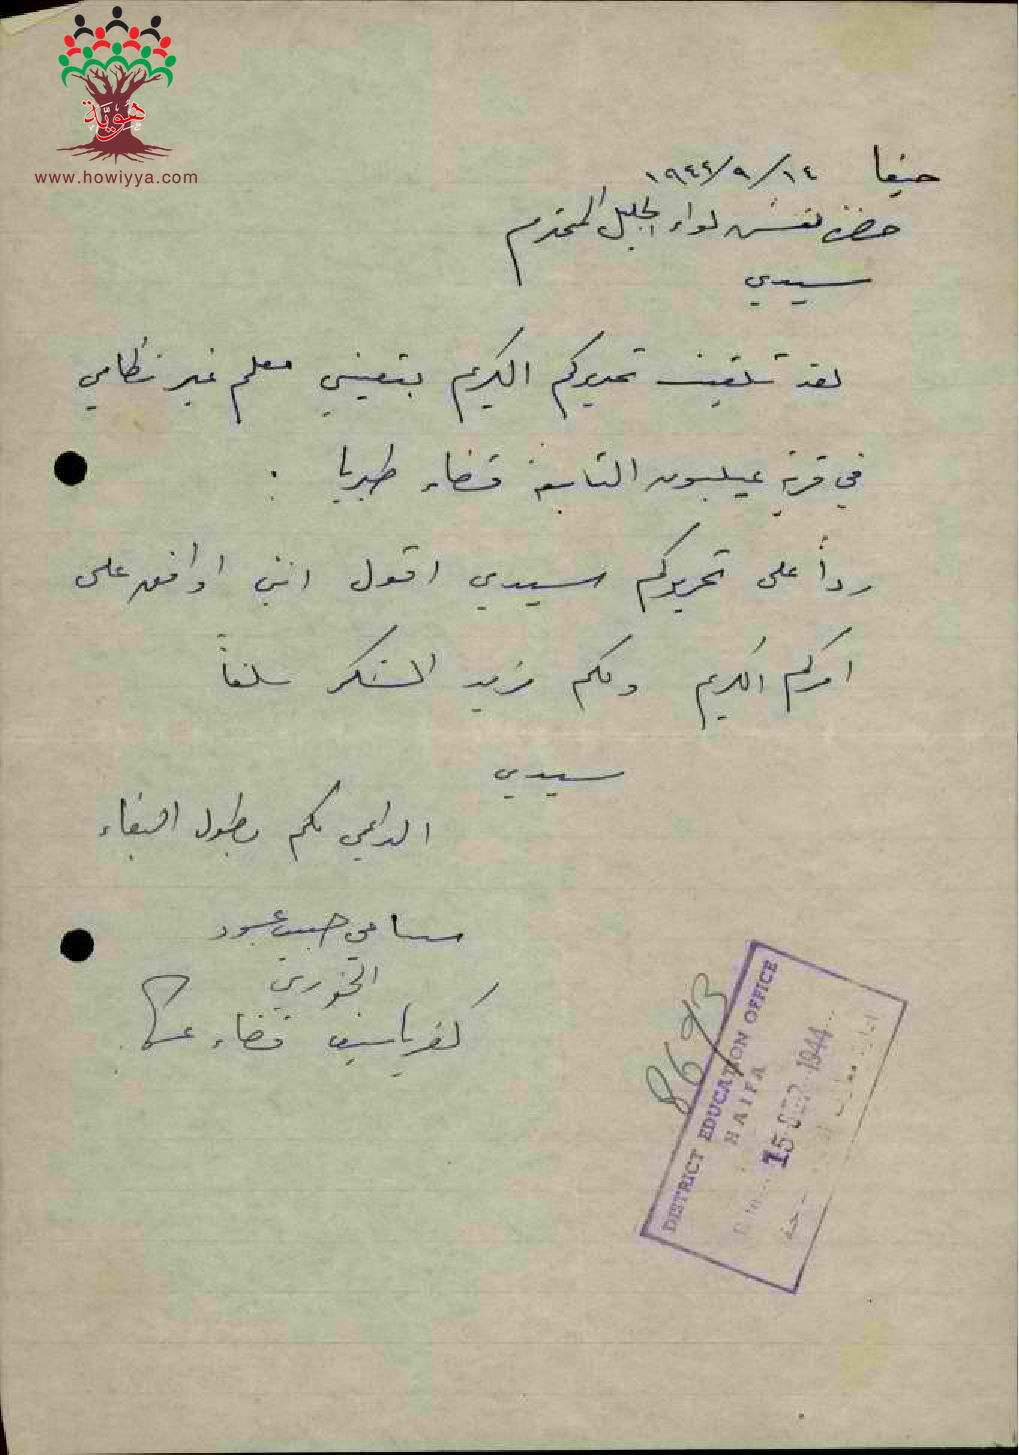 هوية
www.howiyya.com
حيفا ١٤/٩/١٩٤٤
حضرة مفتش لواء الجليل المحترم
سيدي
لقد تلقيت تحريركم الكريم بتعييني معلم غير نظامي
في قرية عيلبون التابعة قضاء طبريا .
رداً على تحريركم سيدي اقول انني اوافق على
امركم الكريم ولكم مزيد الشكر سلفاً
سيدي
الداعي لكم بطول البقاء
سامي حبيب عبود
الخوري
كفرياسيف قضاء عكا
8693
DISTRICT EDUCATION OFFICE
HAIFA
15 SEP 1944